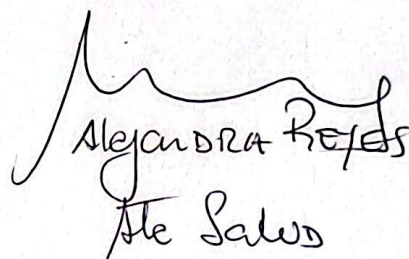 AlejanDRA REyes
Ate SaluD